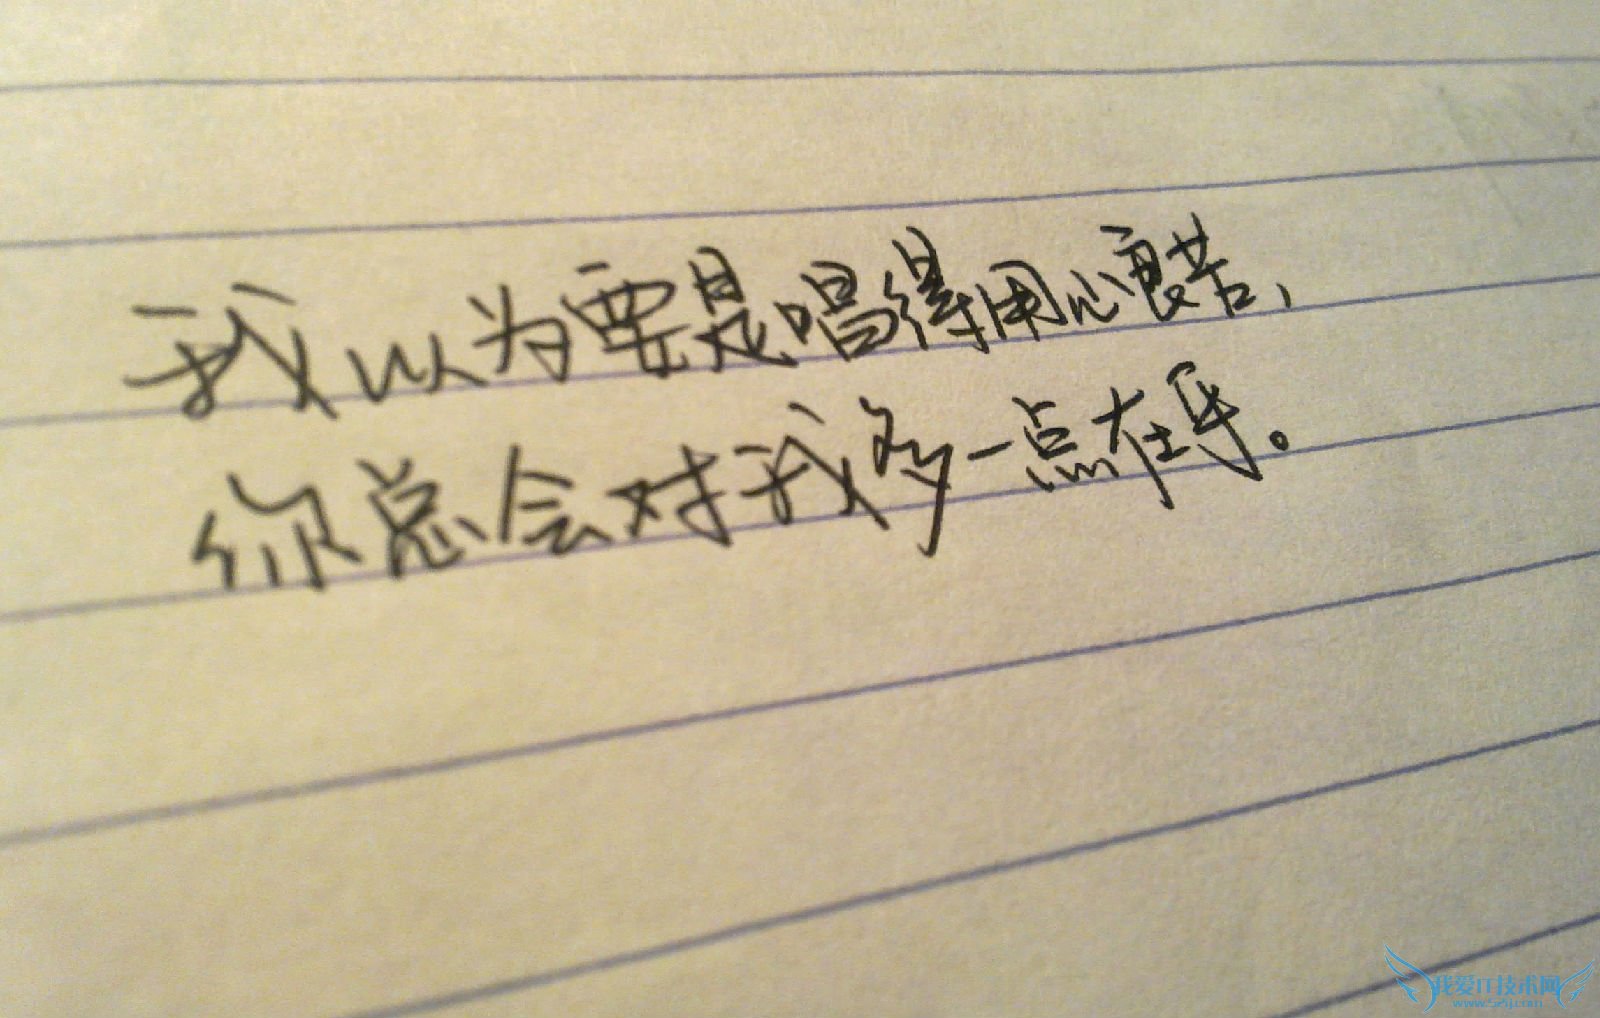 我以为要是唱得用心良苦，
你总会对我多一点在乎。
我爱IT技术网